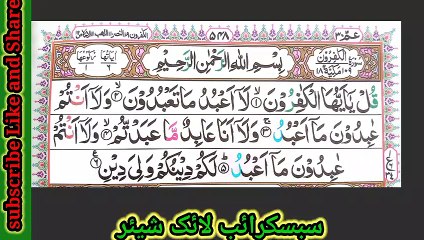 subscribe Like and Share
عمّ ٣٠
٥٤٨
سُوْرَةُ الْكٰفِرُوْنَ
بِسْمِ اللّٰهِ الرَّحْمٰنِ الرَّحِيْمِ
قُلْ يٰٓاَيُّهَا الْكٰفِرُوْنَ ۙ﴿۱﴾ لَاۤ اَعْبُدُ مَا تَعْبُدُوْنَ ۙ﴿۲﴾ وَلَاۤ اَنْتُمْ
عٰبِدُوْنَ مَاۤ اَعْبُدُ ۚ﴿۳﴾ وَلَاۤ اَنَا عَابِدٌ مَّا عَبَدْتُّمْ ۙ﴿۴﴾ وَلَاۤ اَنْتُمْ
عٰبِدُوْنَ مَاۤ اَعْبُدُ ؕ﴿۵﴾ لَكُمْ دِيْنُكُمْ وَلِيَ دِيْنِ ﴿۶﴾
سبسکرائب لائک شیئر